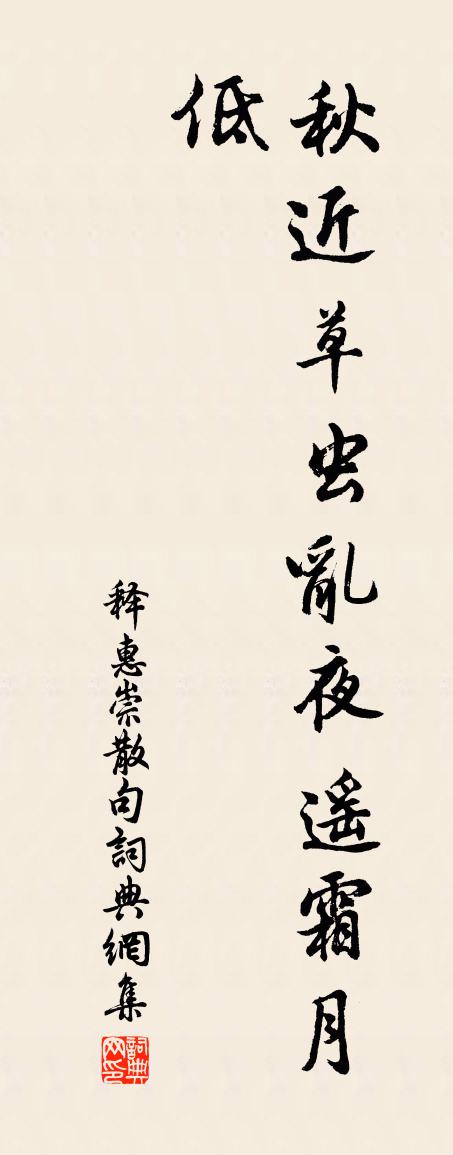 秋近草虫亂夜遥霜月
低
释惠崇散句詞典網集
詞典网印